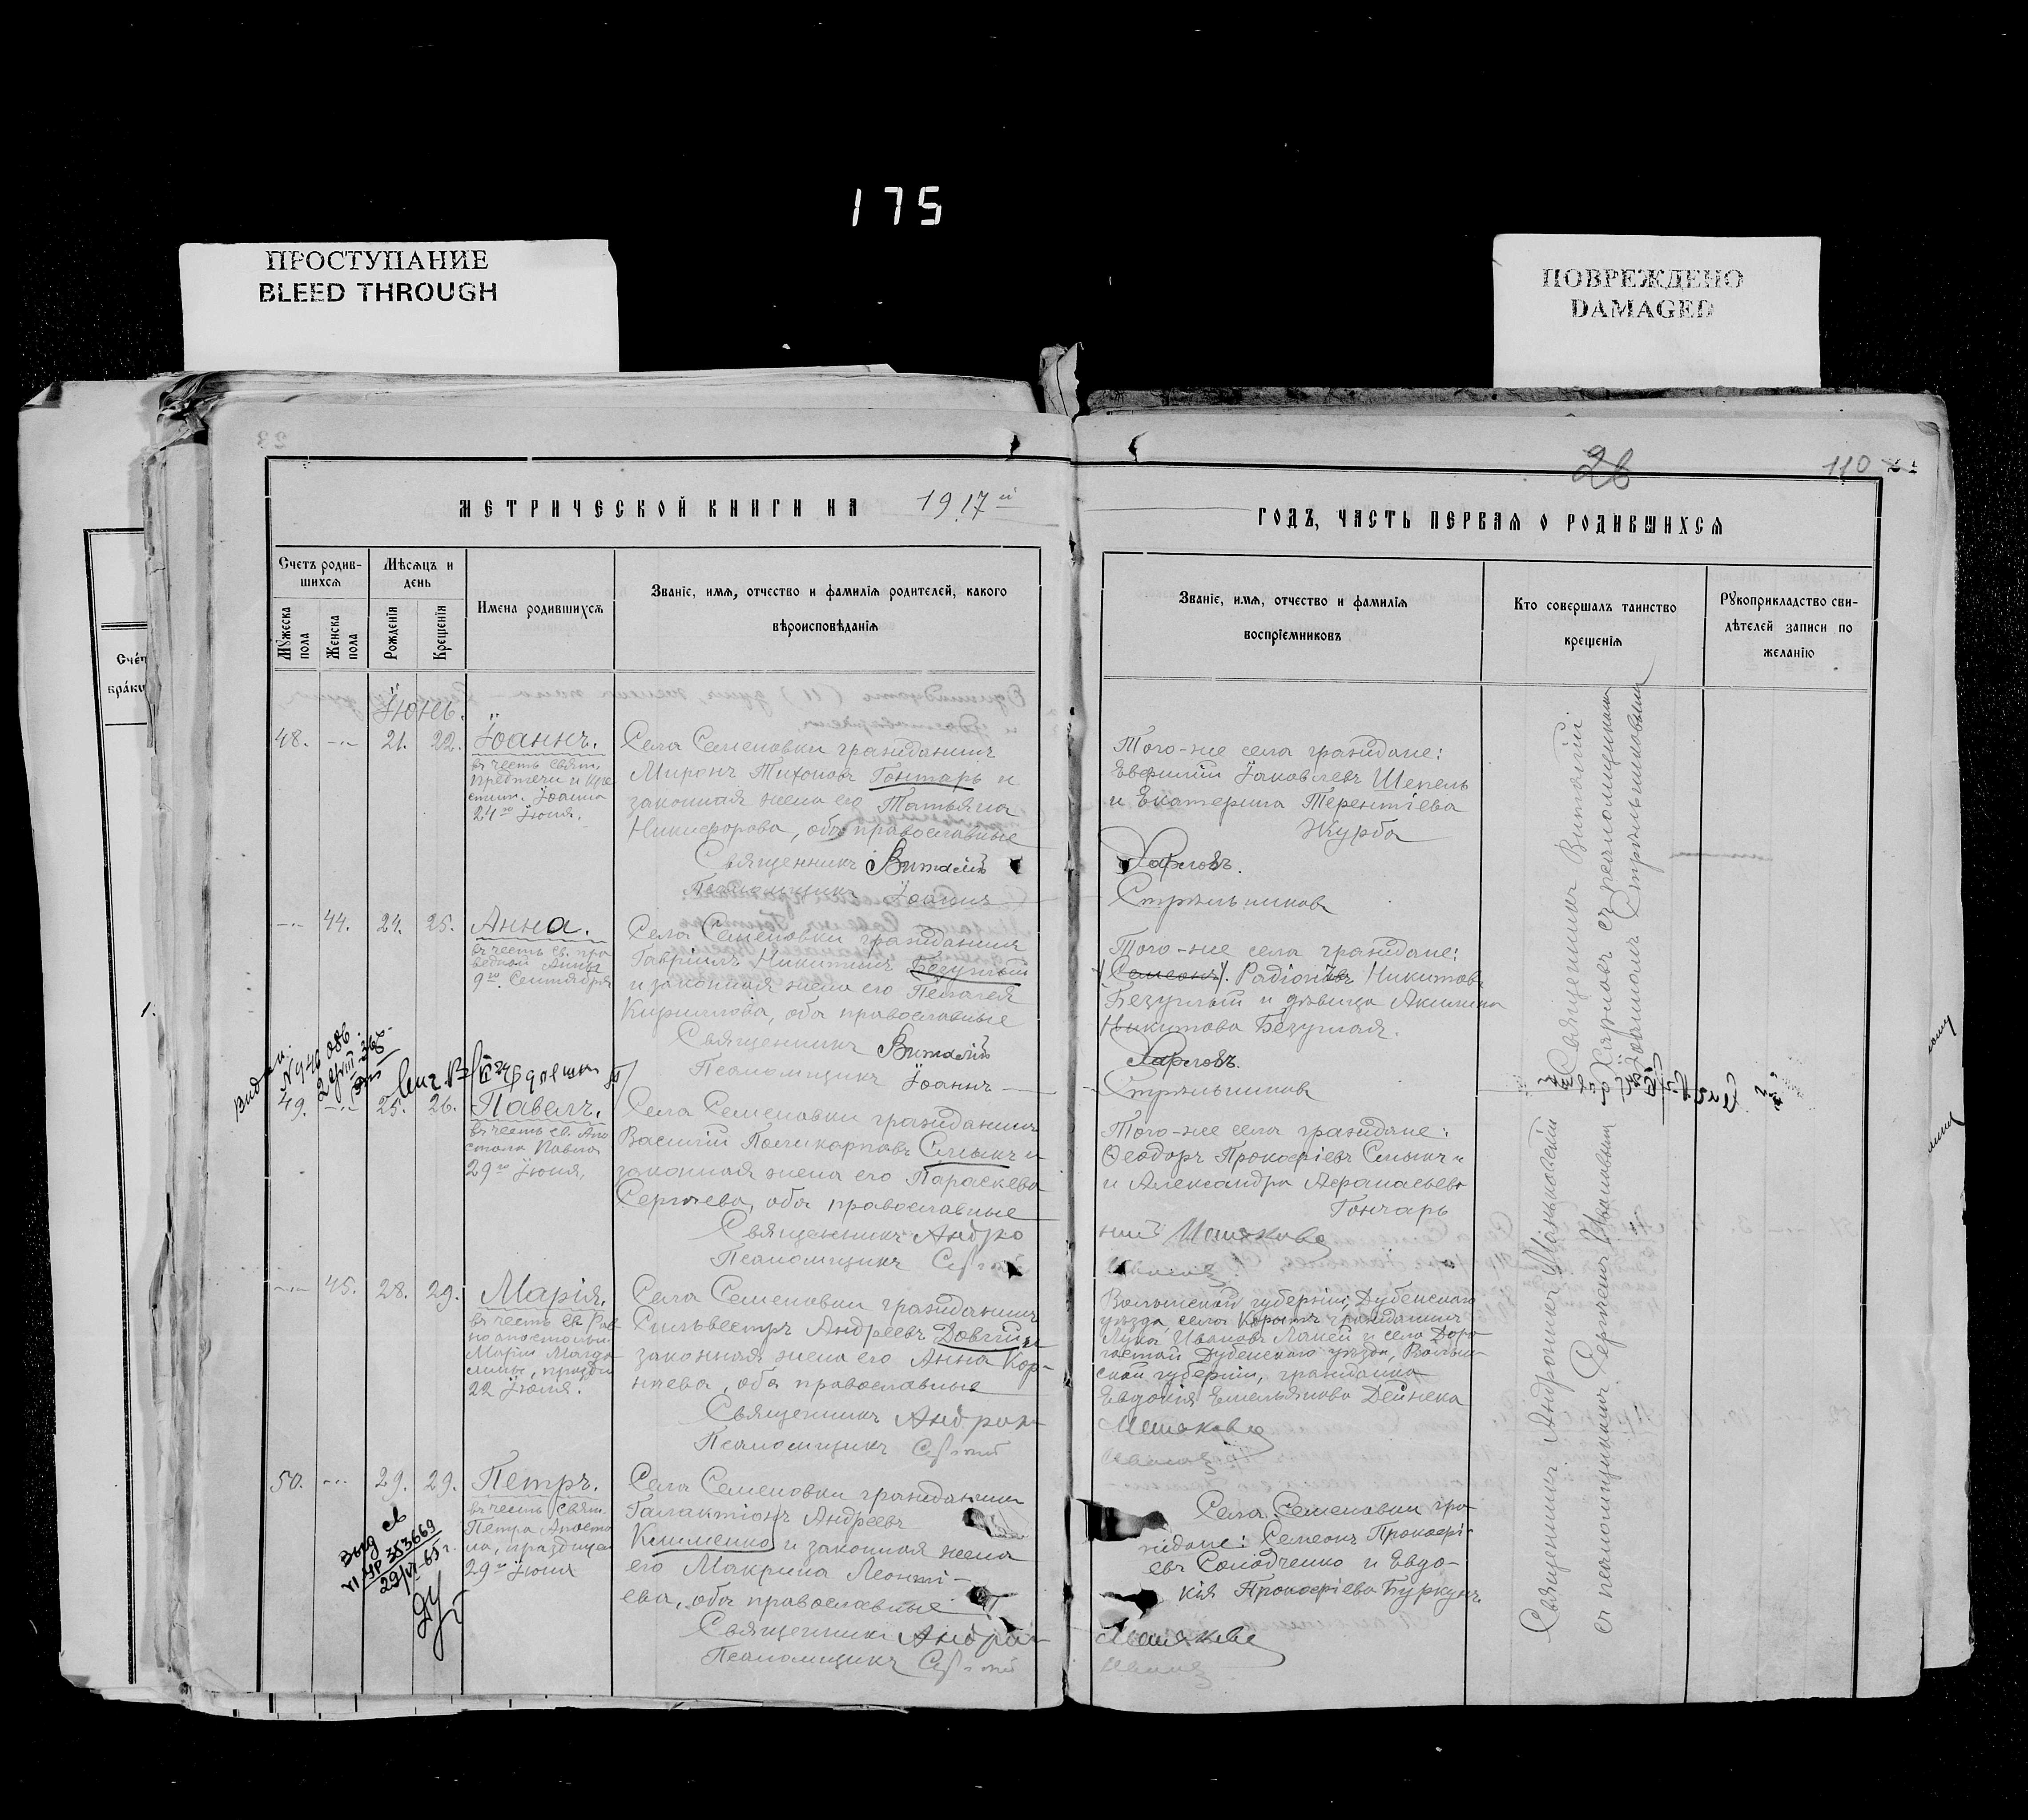 175
ПРОСТУПАНИЕ
BLEED THROUGH
ПОВРЕЖДЕНО
DAMAGED
26
110
МЕТРИЧЕСКОЙ КНИГИ НА 1917й
ГОДЪ, ЧАСТЬ ПЕРВАЯ О РОДИВШИХСЯ
Счетъ родив-
шихся
Мѣсяцъ и
день
Мужеска
пола
Женска
пола
Рожденія
Крещенія
Имена родившихся
Званіе, имя, отчество и фамилія родителей, какого
вѣроисповѣданія
Званіе, имя, отчество и фамилія
воспріемниковъ
Кто совершалъ таинство
крещенія
Рукоприкладство сви-
дѣтелей записи по
желанію
Іюнь.
48. 21. 22. Іоаннъ.
въ честь свят.
Предтечи и Кре
стит. Іоанна
24го Іюня.
Села Семеновки гражданинъ
Миронъ Тихоновъ Гонтарь и
законная жена его Татьяна
Никифорова, оба православные
Священникъ Виталій
Псаломщикъ Іоаннъ
Того-же села граждане:
Евфимій Іаковлевъ Шепель
и Екатерина Терентіева
Журба
Харловъ.
Стрѣльниковъ
44. 24. 25. Анна.
въ честь св. пра
ведной Анны
9го Сентября
Села Семеновки гражданинъ
Гавріилъ Никитинъ Безуглый
и законная жена его Пелагея
Кириллова, оба православные
Священникъ Виталій
Псаломщикъ Іоаннъ
Того-же села граждане:
Радіонъ Никитовъ
Безуглый и дѣвица Акилина
Никитова Безуглая.
Харловъ.
Стрѣльниковъ
49. 25. 26. Павелъ.
въ честь св. Апо
стола Павла
29го Іюня,
Села Семеновки гражданинъ
Василій Поликарповъ Смыкъ и
законная жена его Параскева
Сергѣева, оба православные
Священникъ Андро
Псаломщикъ
Того-же села граждане:
Ѳеодоръ Прокофіевъ Смыкъ
и Александра Афанасьева
Гончарь
45. 28. 29. Марія.
въ честь св. Рав
ноапостольн.
Маріи Магда
лины, праздн.
22 Іюля.
Села Семеновки гражданинъ
Сильвестръ Андреевъ Довгій и
законная жена его Анна Кор-
нѣева, оба православные
Священникъ Андрон
Псаломщикъ Сергѣй
Волынской губерніи, Дубенскаго
уѣзда, села гражданинъ
Лука Ивановъ и села Доро-
гостай Дубенскаго уѣзда, Волын-
ской губерніи, гражданка
Евдокія Емельянова Дейнека
50. 29. 29. Петръ.
въ честь свят.
Петра Апосто
ла, празднуем
29го Іюня
Села Семеновки гражданинъ
Галактіонъ Андреевъ
Клименко и законная жена
его Макрина Леонті-
ева, оба православные
Священникъ Андрон
Псаломщикъ Сергѣй
Села Семеновки гра-
ждане: Семеонъ Прокофі-
евъ Солодченко и Евдо-
кія Прокофіева Буркунъ.
Священникъ Виталій
Харловъ съ псаломщикомъ
Іоанномъ Стрѣльниковымъ
Священникъ Андроникъ Маньковскій
съ псаломщикомъ Сергѣемъ Ивановымъ
Выд св
353669
29/VI-65 г.